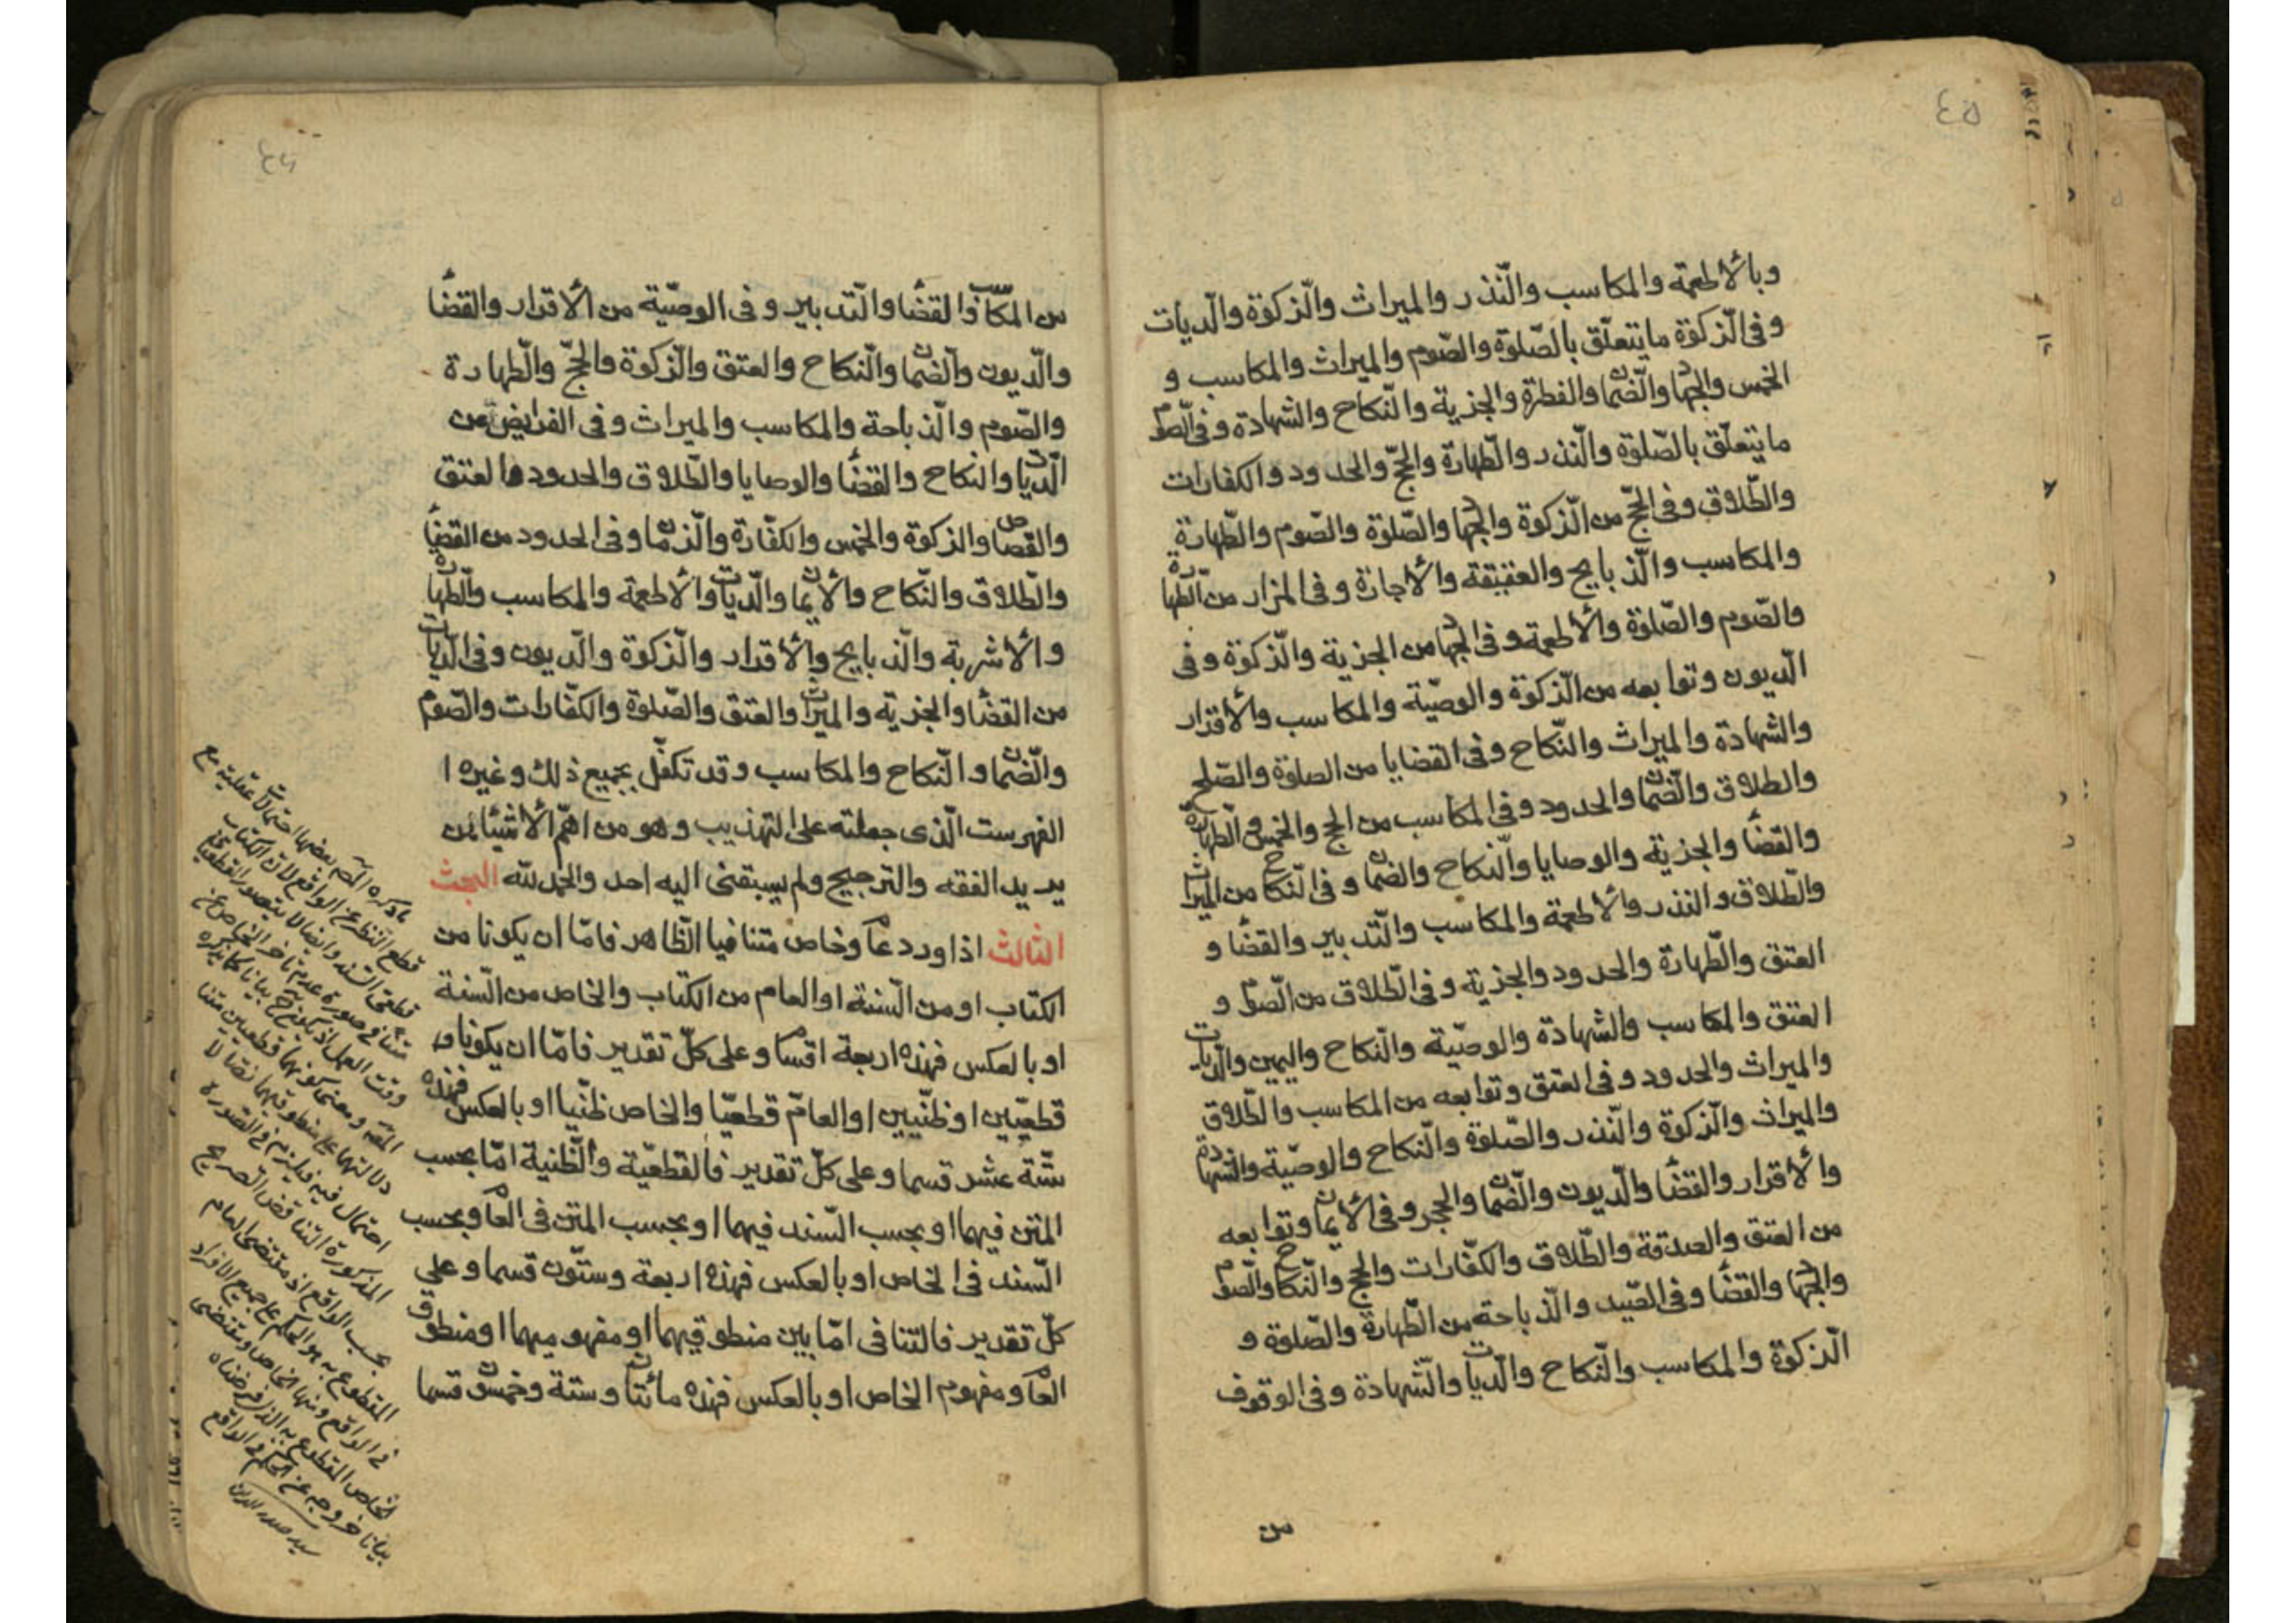 ٤٥
وبالأطعمة والمكاسب والنّذر والميراث والزّكوة والدّيات
وفى الزّكوة ما يتعلّق بالصّلوة والصّوم والميراث والمكاسب و
الخمس والجهاد والضّمان والفطرة والجزية والنّكاح والشهادة وفى الصّوم
ما يتعلّق بالصّلوة والنّذر والطّهارة والحجّ والحدود والكفارات
والطّلاق وفى الحجّ من الزّكوة والجهاد والصّلوة والصّوم والطّهارة
والمكاسب والذّبايح والعقيقة والأجارة وفى المزار من الطّهارة
والصّوم والصّلوة والأطعمة وفى الجهاد من الجزية والزّكوة وفى
الدّيون وتوابعه من الزّكوة والوصيّة والمكاسب والأقرار
والشهادة والميراث والنّكاح وفى القضايا من الصلوة والصّلح
والطلاق والضّمان والحدود وفى المكاسب من الحج والخمس والطّهارة
والقضاء والجزية والوصايا والنّكاح والضمان وفى النّكاح من الميراث
والطّلاق والنذر والأطعمة والمكاسب والتّدبير والقضاء و
العتق والطّهارة والحدود والجزية وفى الطّلاق من الصّوم و
العتق والمكاسب والشهادة والوصيّة والنّكاح واليمين والدّيات
والميراث والحدود وفى العتق وتوابعه من المكاسب والطّلاق
والميراث والزّكوة والنّذر والصّلوة والنّكاح والوصيّة والشهادة
والأقرار والقضاء والدّيون والضّمان والحجر وفى الأيمان وتوابعه
من العتق والصدقة والطّلاق والكفّارات والحجّ والنّكاح والصّوم
والجهاد والقضاء وفى الصّيد والذّباحة من الطّهارة والصّلوة و
الزّكوة والمكاسب والنّكاح والدّيات والشّهادة وفى الوقوف
من
٤٦
من المكاسب والقضاء والتّدبير وفى الوصيّة من الأقرار والقضاء
والدّيون والضّمان والنّكاح والعتق والزّكوة والحجّ والطّهارة
والصّوم والذّباحة والمكاسب والميراث وفى الفرايض من
الدّيات والنكاح والقضاء والوصايا والطّلاق والحدود والعتق
والقصاص والزكوة والخمس والكفّارة وفى الحدود من القضاء
والطّلاق والنّكاح والأيمان والدّيات والأطعمة والمكاسب والطّهارة
والأشربة والذّبايح والأقرار والزّكوة والدّيون وفى الدّيات
من القضاء والجزية والميراث والعتق والصّلوة والكفّارات والصّوم
والضّمان والنّكاح والمكاسب وقد تكفّل بجميع ذلك وغيرها
الفهرست الّذى جعلته على التهذيب وهو من اهمّ الأشياء لمن
يريد الفقه والترجيح ولم يسبقنى اليه احد والحمد لله البحث
الثالث اذا ورد عام وخاص متنافيا الظّاهر فامّا ان يكونا من
الكتاب او من السّنة او العام من الكتاب والخاص من السّنة
او بالعكس فهذه اربعة اقسام وعلى كلّ تقدير فامّا ان يكونا
قطعيّين او ظنّيين او العامّ قطعيّا والخاص ظنّيا او بالعكس فهذه
ستّة عشر قسما وعلى كلّ تقدير فالقطعيّة والظّنية امّا بحسب
المتن فيهما او بحسب السّند فيهما او بحسب المتن فى العام وبحسب
السّند فى الخاص او بالعكس فهذه اربعة وستّون قسما وعلى
كلّ تقدير فالتنافى امّا بين منطوقيهما او مفهوميهما او منطوق
العام ومفهوم الخاص او بالعكس فهذه مائتان وستة وخمسون قسما
ما ذكره المص بعضها احتمالات عقلية مع
قطع النظر عن الواقع لان الكتاب
دلالتهما على منطوقيهما نصا لا
احتمال فيه فيلزم فى الصورة
المذكورة التناقض الصريح
بحسب الواقع اذ مقتضى العام
المقطوع به هو الحكم على جميع الافراد
فى الواقع ومنها الخاص ومقتضى
الخاص المقطوع به الذى فرضناه
بيانا خروجه عن الحكم فى الواقع
سيد صدر الدين